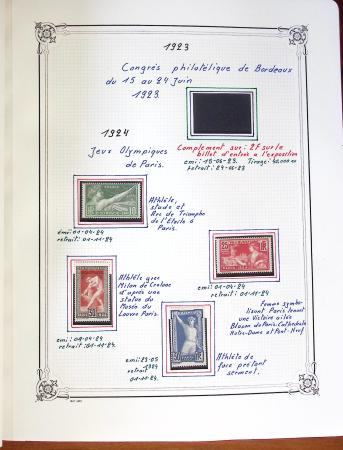 1923
Congrès philatélique de Bordeaux
du 15 au 24 Juin
1923.
1924
Jeux Olympiques
de Paris.
Complement sur: 2f sur le
billet d'entrée à l'exposition
emi: 15-06-23. Tirage:
retrait: 24-06-23
Athlète,
stade et
Arc de Triomphe
de l'Étoile à
Paris.
émi: 01-04-24
retrait: 01-11-24
Athlète avec
Milon de Crotone
d'après une
statue du
Musée du
Louvre Paris.
emi: 01-04-24
retrait: 01-11-24
Femme symbo-
lisant Paris tenant
une Victoire ailée
Blason de Paris. Cathédrale
Notre-Dame et Pont-Neuf
emi: 01-04-24
retrait: 01-11-24
emi: 23-05
1924
retrait
01-11-24
Athlète de
face prêtant
serment.